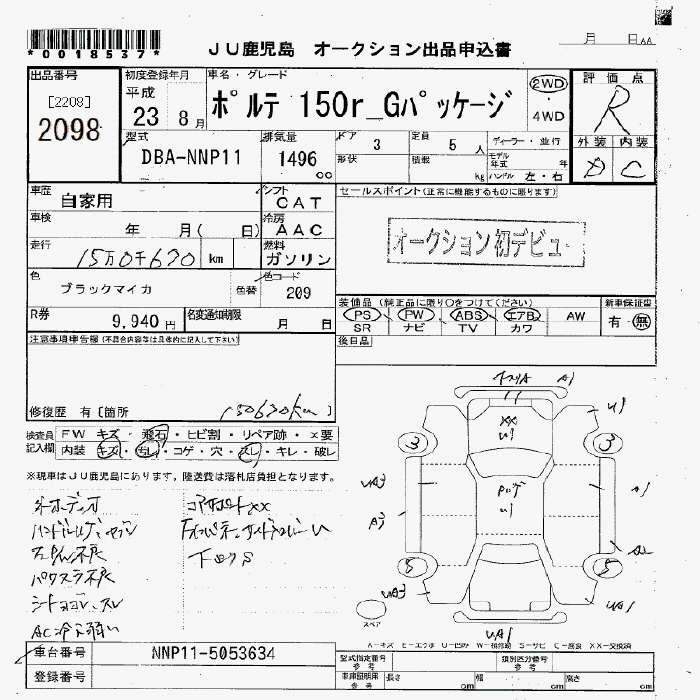 *0018537*
JU鹿児島 オークション出品申込書
月 日 AA
出品番号
[2208]
2098
初度登録年月
平成
23 8月
車名・グレード
ポルテ 150r_Gパッケージ
2WD
・
4WD
評価点
R
外装 内装
D C
型式
DBA-NNP11
排気量
1496
cc
ドア 3
形状
定員 5 人
積載 kg
ディーラー・並行
モデル年式 年
ハンドル 左・右
車歴 自家用
シフト CAT
車検 年 月( 日)
冷房 AAC
走行 15万0千630 km
燃料 ガソリン
色 ブラックマイカ 色替
色コード 209
R券 9,940 円
名変通知期限 月 日
セールスポイント(正常に機能するものに限ります)
オークション初デビュー
装備品(純正品に限り○をつけてください)
PS PW ABS エアB AW
SR ナビ TV カワ
新車保証書
有・無
後日品
注意事項申告欄(不具合内容等は具体的に記入して下さい)
修復歴 有〔箇所 150630km 〕
検査員記入欄
FW キズ・飛石・ヒビ割・リペア跡・×要
内装 キズ・ヨゴレ・コゲ・穴・スレ・キレ・破レ
※現車はJU鹿児島にあります。陸送費は落札店負担となります。
コアサポートXX
下回りS
パワスラ不良
AC冷え弱い
A1
U1
XX
U1
3
3
UA3
A1
U1
A3
A2
5
5
UA3
UA1
UA1
スペア
A-キズ E-エクボ U-凹み W-補修跡 S-サビ C-腐食 XX-交換済
車台番号 NNP11-5053634
登録番号
型式指定番号 参考
類別区分番号 参考
車庫証明用 参考
長さ cm
幅 cm
高さ cm